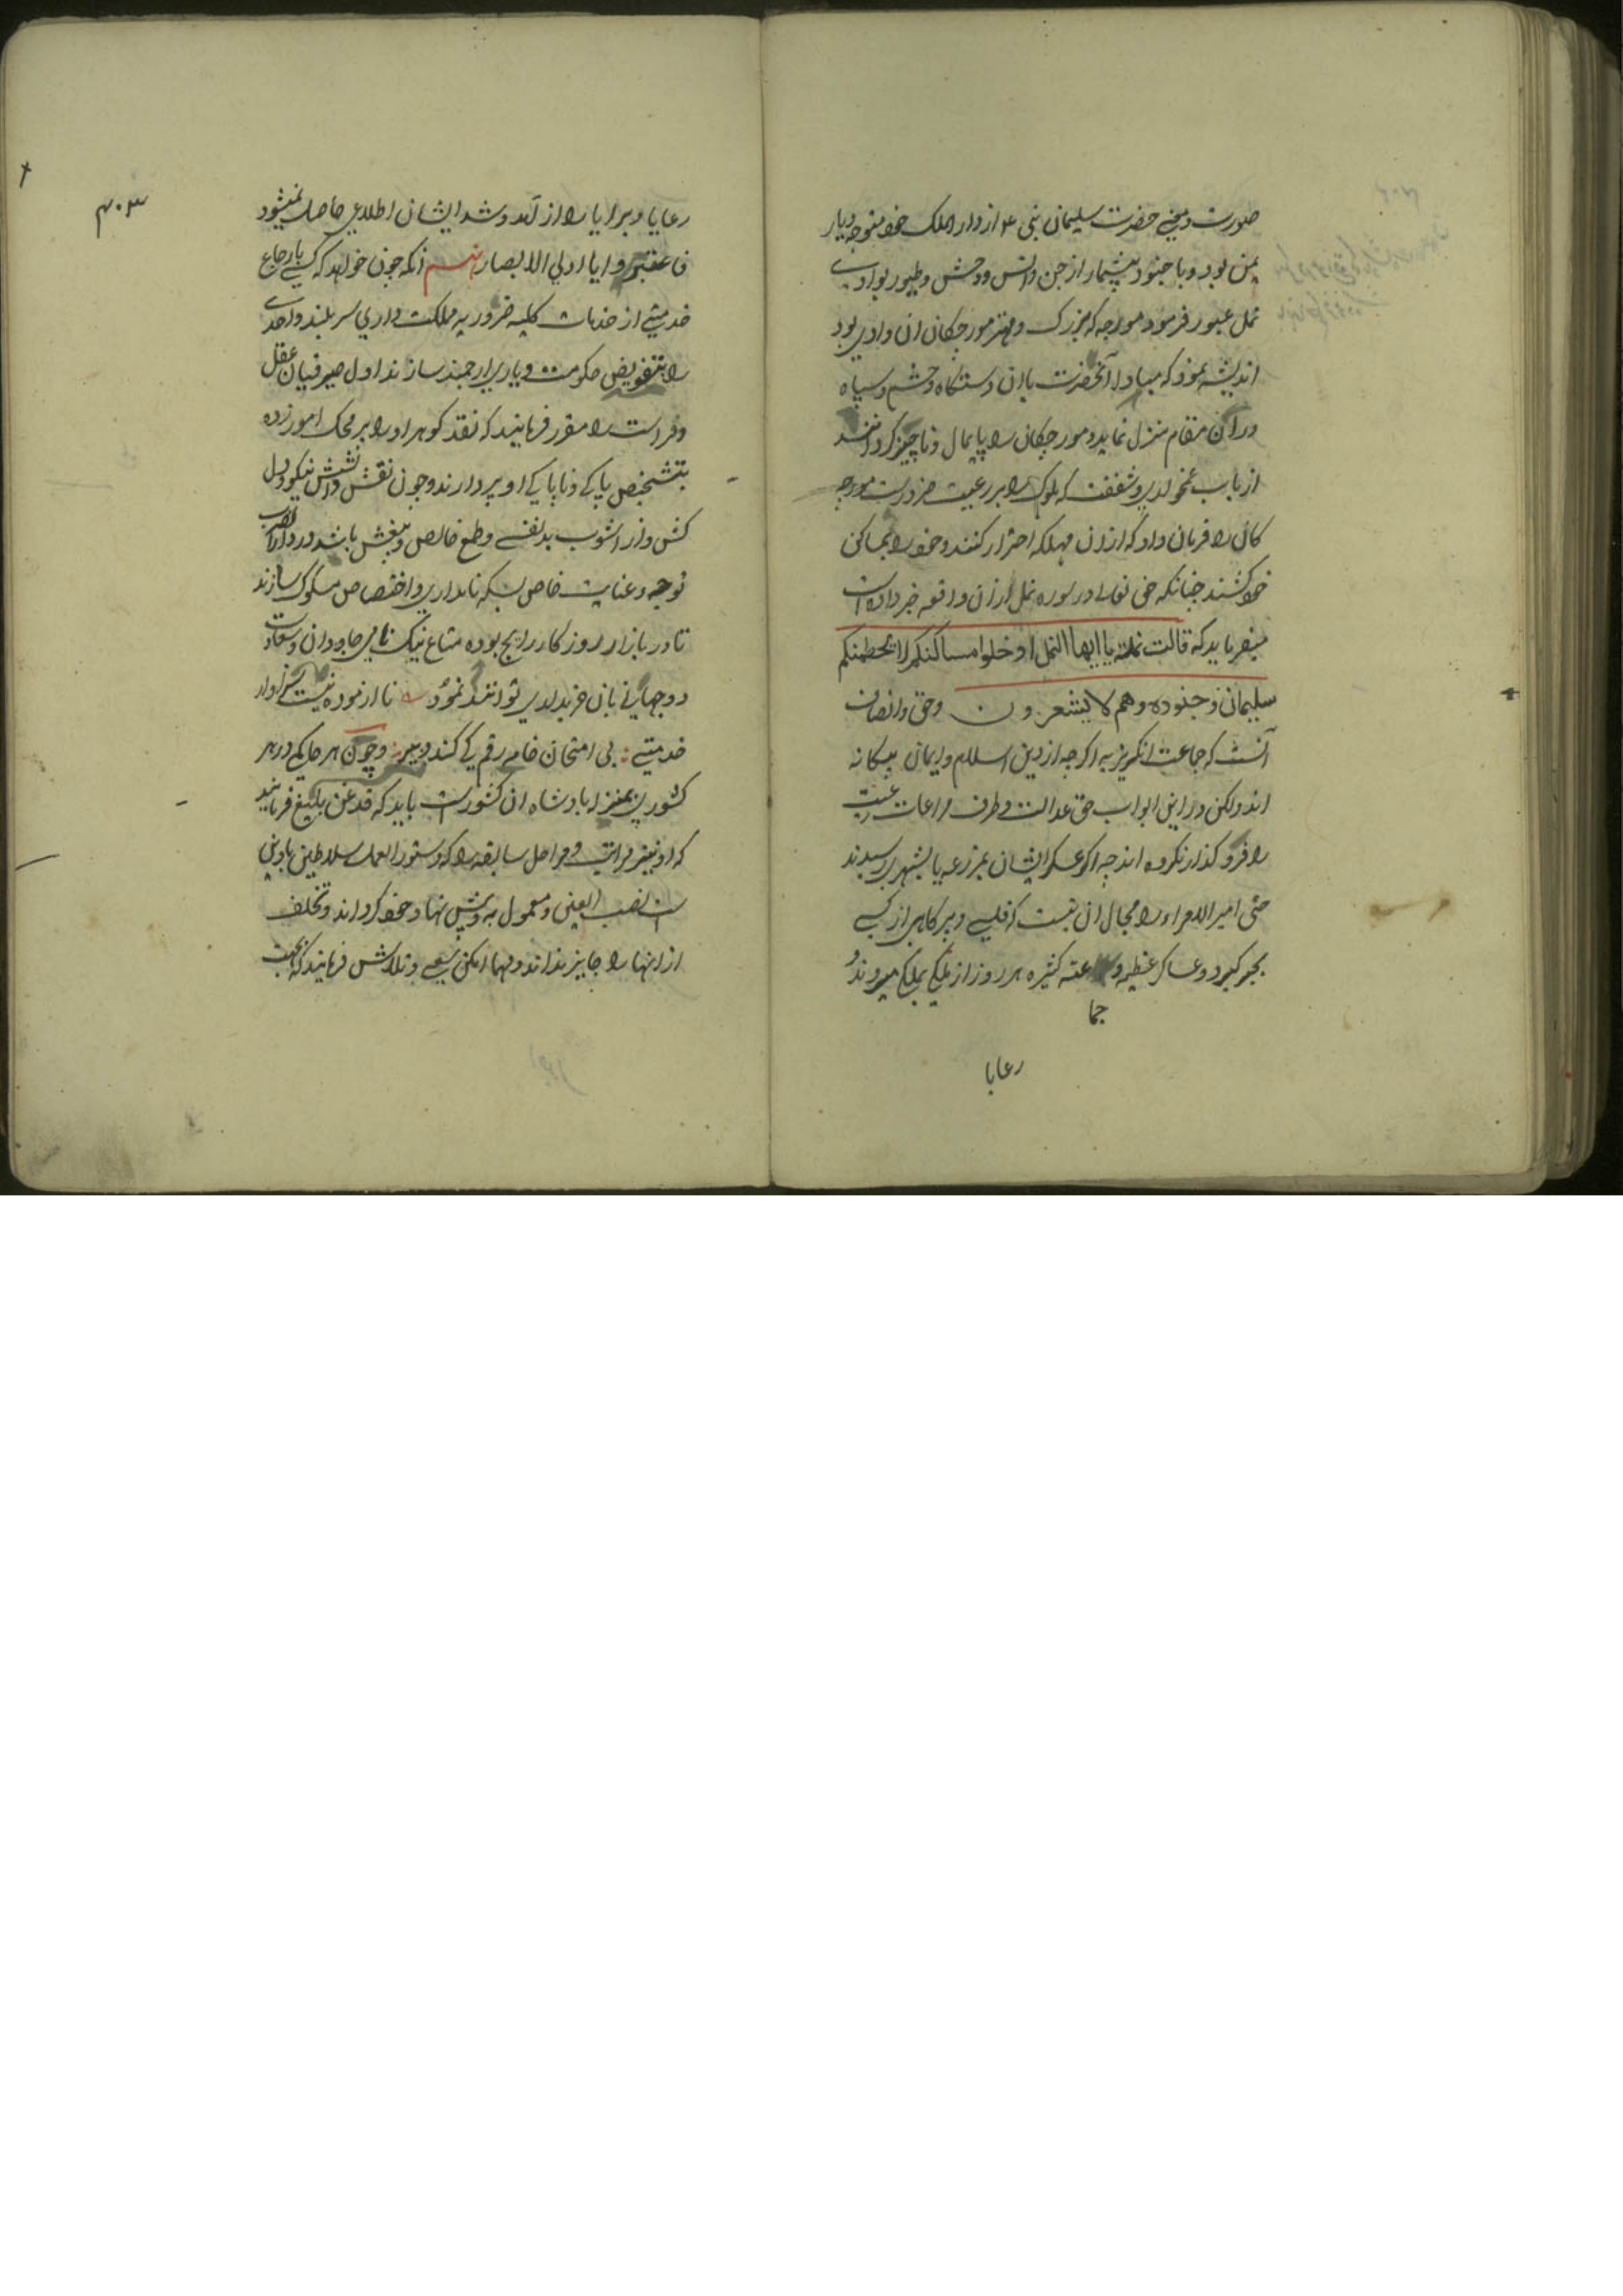 صورت و مخے حضرت سلیمان نبی ۴ از دار الملک خود متوجه دیار
یمن بود و با جنود بیشمار از جن و انس و وحش و طیور بوادے
نمل عبور فرمود مورچه که بزرک و مهتر مورچکان ان وادی بود
اندیشه نمود که مبادا آنحضرت با ان دستکاه و حشم و سپاه
دران مقام منزل نماید و مورچکان را پایمال و ناچیز کردانند
از باب غمخواری و شفقت که ملوک را بر رعیت ضرورست مورچه
کان را فرمان داد که ازان مهلکه احتراز کنند و خود را بمساکن
خود کشند چنانکه حق تعالے در سوره نمل ازان واقعه خبر داده است
میفرماید که قالت نملة یا ایها النمل ادخلوا مساکنکم لا یحطمنکم
سلیمان و جنوده وهم لا یشعرون و حق و انصاف
آنست که جماعت انکریزیه اکرچه از دین اسلام و ایمان بیکانه
اند ولکن در این ابواب حق عدالت و طرف مراعات رعیت
را فرو کذار نکرده اند چه اکر عسکر ایشان بمزرعه یا بشهری رسیدند
حتی امیر الامراء را مجال ان نیست که قلیے و پر کاهی از کسے
بجبر کیرد و عساکر عظیمه و اعته کثیره هر روز از ملکے بملکے میروند و
جما
رعایا
۴۰۳
رعایا و برایا را از آمد و شد ایشان اطلاعی حاصل نمیشود
فاعتبروا یا اولی الابصار انکه چون خواهد که کسے بارجاع
خدمتے از خدمات کلیه ضروریه مملکت داری سربلند و احدے
را بتفویض حکومت دیاری ارجمند سازند اول صیرفیان عقل
و فراست را مقرر فرمایند که نقد کوهر او را بر محک امور زده
بتشخیص پاکے و ناپاکے او پردازند و چون نقش دانش نیکو و دل
کش و از اشوب بدنفسے و طمع خالص و بیغش باشد در دار الضرب
توجه و عنایت خاص بسکه نامداری و اختصاص مسکوک سازند
تا در بازار روزکار رایج بوده متاع نیک نامی جاودان و سعادت
دوجهانے بان خریداری توانند نمود نا ازموده نیست سزاوار
خدمتے بی امتحان خامه رقم کے کند دبیر و چون هر حاکمے در هر
کشوری بمنزله پادشاه ان کشورست باید که قدغن بلیغ فرمایند
که او نیز مراتب و مراحل سابقه را که دستور العمل سلاطین با دین
ست نصب العین و معمول به و پیش نهاد خود کرداند و تخلف
از انها را جایز نداند و مهما امکن سعے و تلاش فرمایند که بجهت